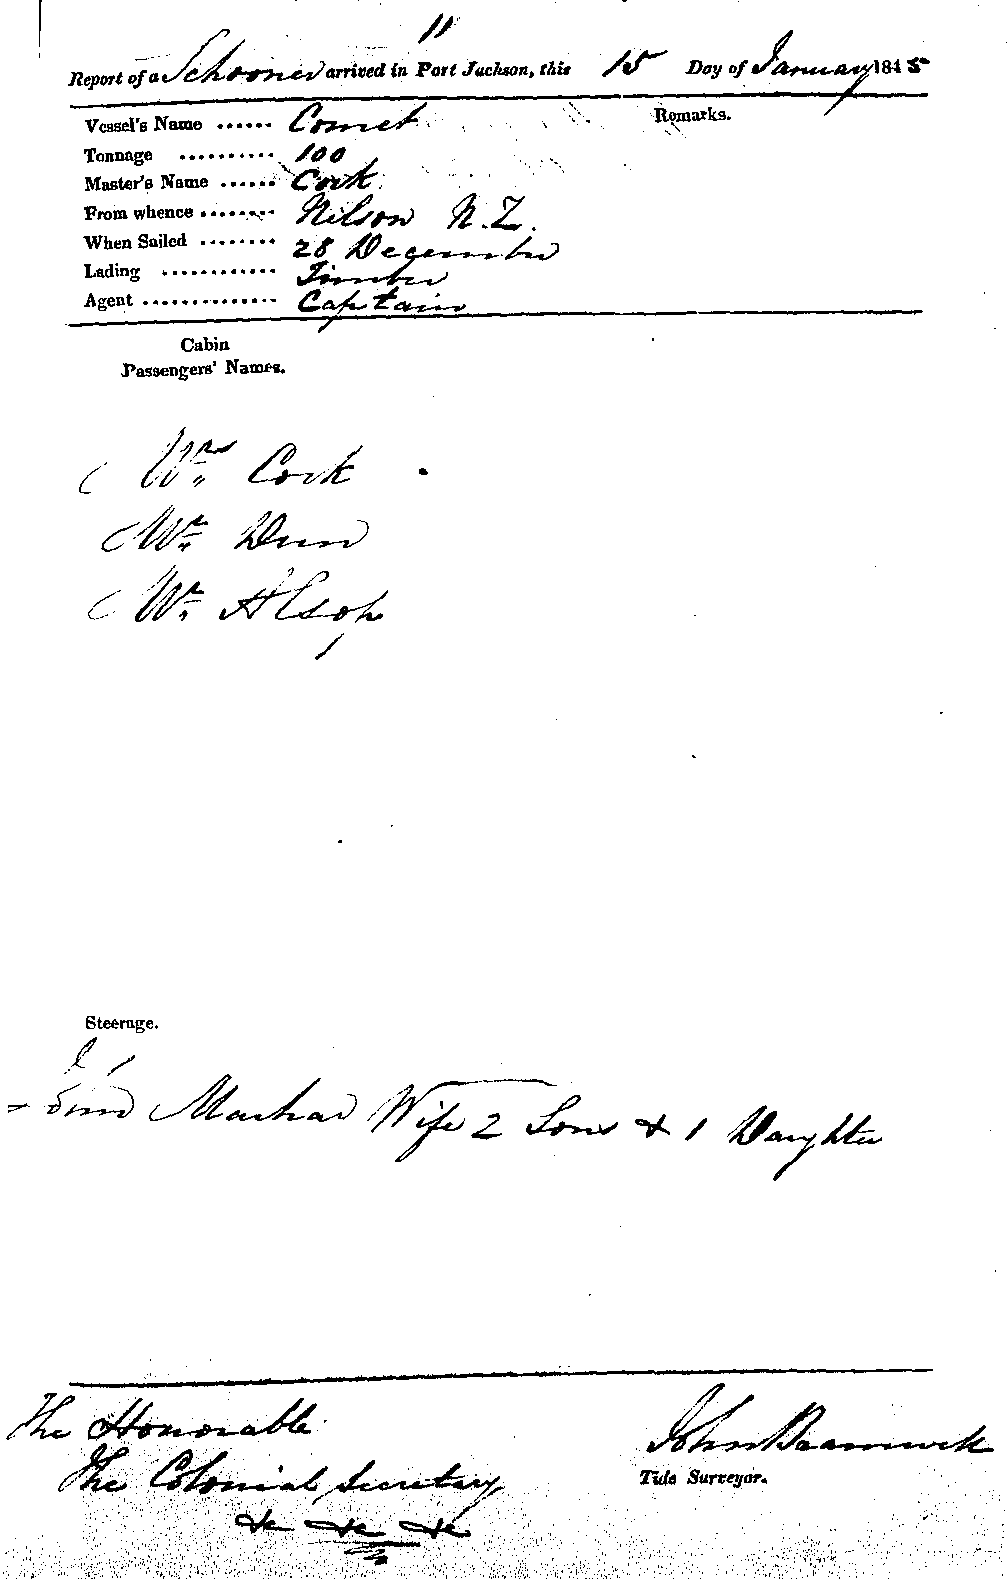 11
Report of a Schooner arrived in Port Jackson, this 15 Day of January 1845
Remarks.
Vessel's Name ...... Comet
Tonnage .......... 100
Master's Name ...... Cork
From whence ........ Nelson N.Z.
When Sailed ........ 28 December
Lading ............ Timber
Agent .............. Captain
Cabin
Passengers' Names.
Mrs Cork
Mr Dun
Mr Alsop
Steerage.
Wife 2 Sons & 1 Daughter
The Honorable
The Colonial Secretary
&c &c &c
John
Tide Surveyor.